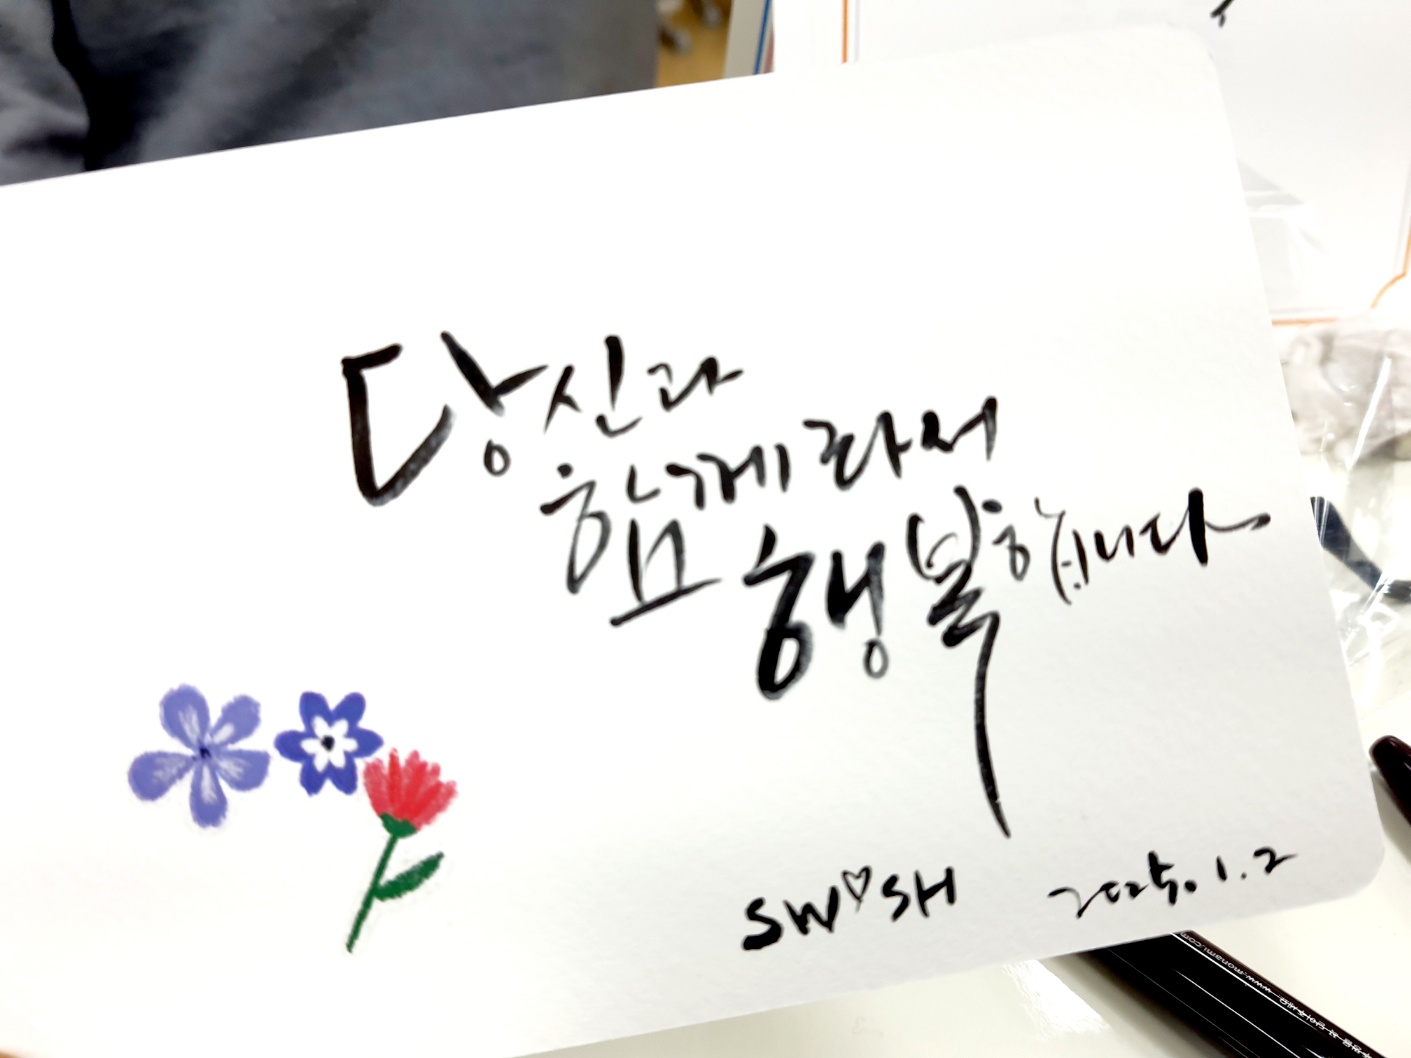 당신과
함께라서
행복합니다
SW♡SH 2025.1.2
www.monami.com